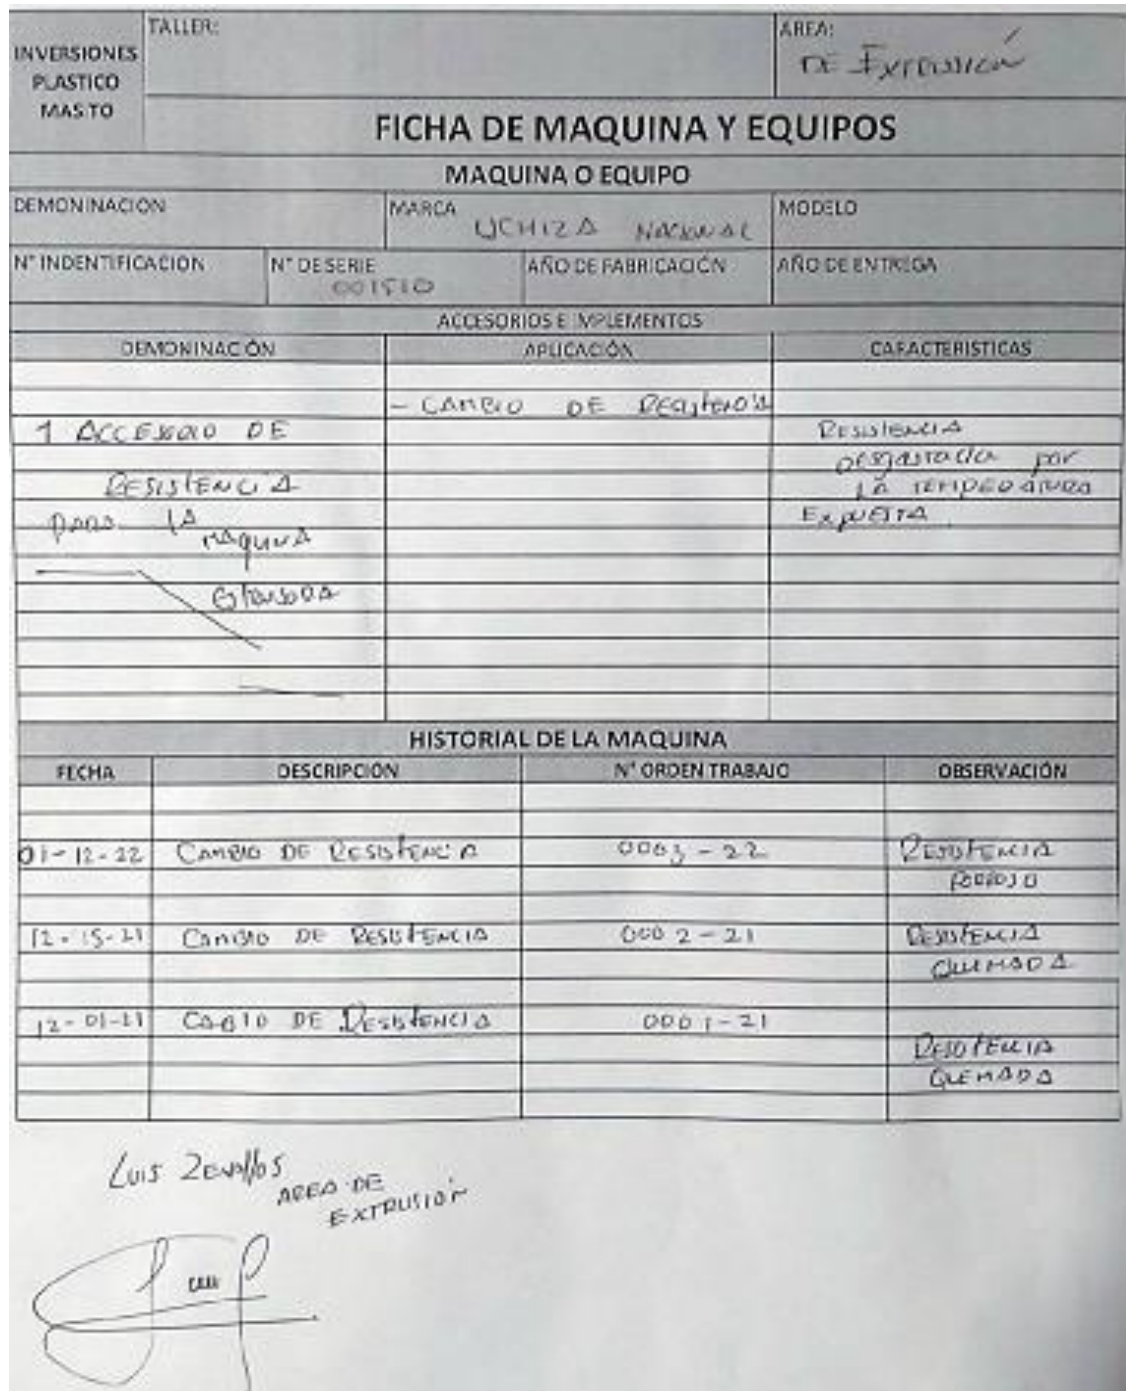 INVERSIONES
PLASTICO
MASITO
TALLER:
AREA:
DE Extrusión
FICHA DE MAQUINA Y EQUIPOS
MAQUINA O EQUIPO
DEMONINACION
MARCA
UCHIZA NACIONAL
MODELO
N° INDENTIFICACION
N° DE SERIE
001510
AÑO DE FABRICACIÓN
AÑO DE ENTREGA
ACCESORIOS E IMPLEMENTOS
DEMONINACIÓN
APLICACIÓN
CARACTERISTICAS
1 ACCESORIO DE
RESISTENCIA
para LA
MAQUINA
- CAMBIO DE RESISTENCIA
RESISTENCIA
DESGASTADA por
LA TEMPERATURA
EXPUESTA.
HISTORIAL DE LA MAQUINA
FECHA DESCRIPCIÓN N° ORDEN TRABAJO OBSERVACIÓN
01-12-22 CAMBIO DE RESISTENCIA 0003-22 RESISTENCIA
12-15-21 CAMBIO DE RESISTENCIA 0002-21 RESISTENCIA
QUEMADA
12-01-21 CABIO DE RESISTENCIA 0001-21
RESISTENCIA
QUEMADA
LUIS ZEVALLOS
AREA DE
EXTRUSIÓN